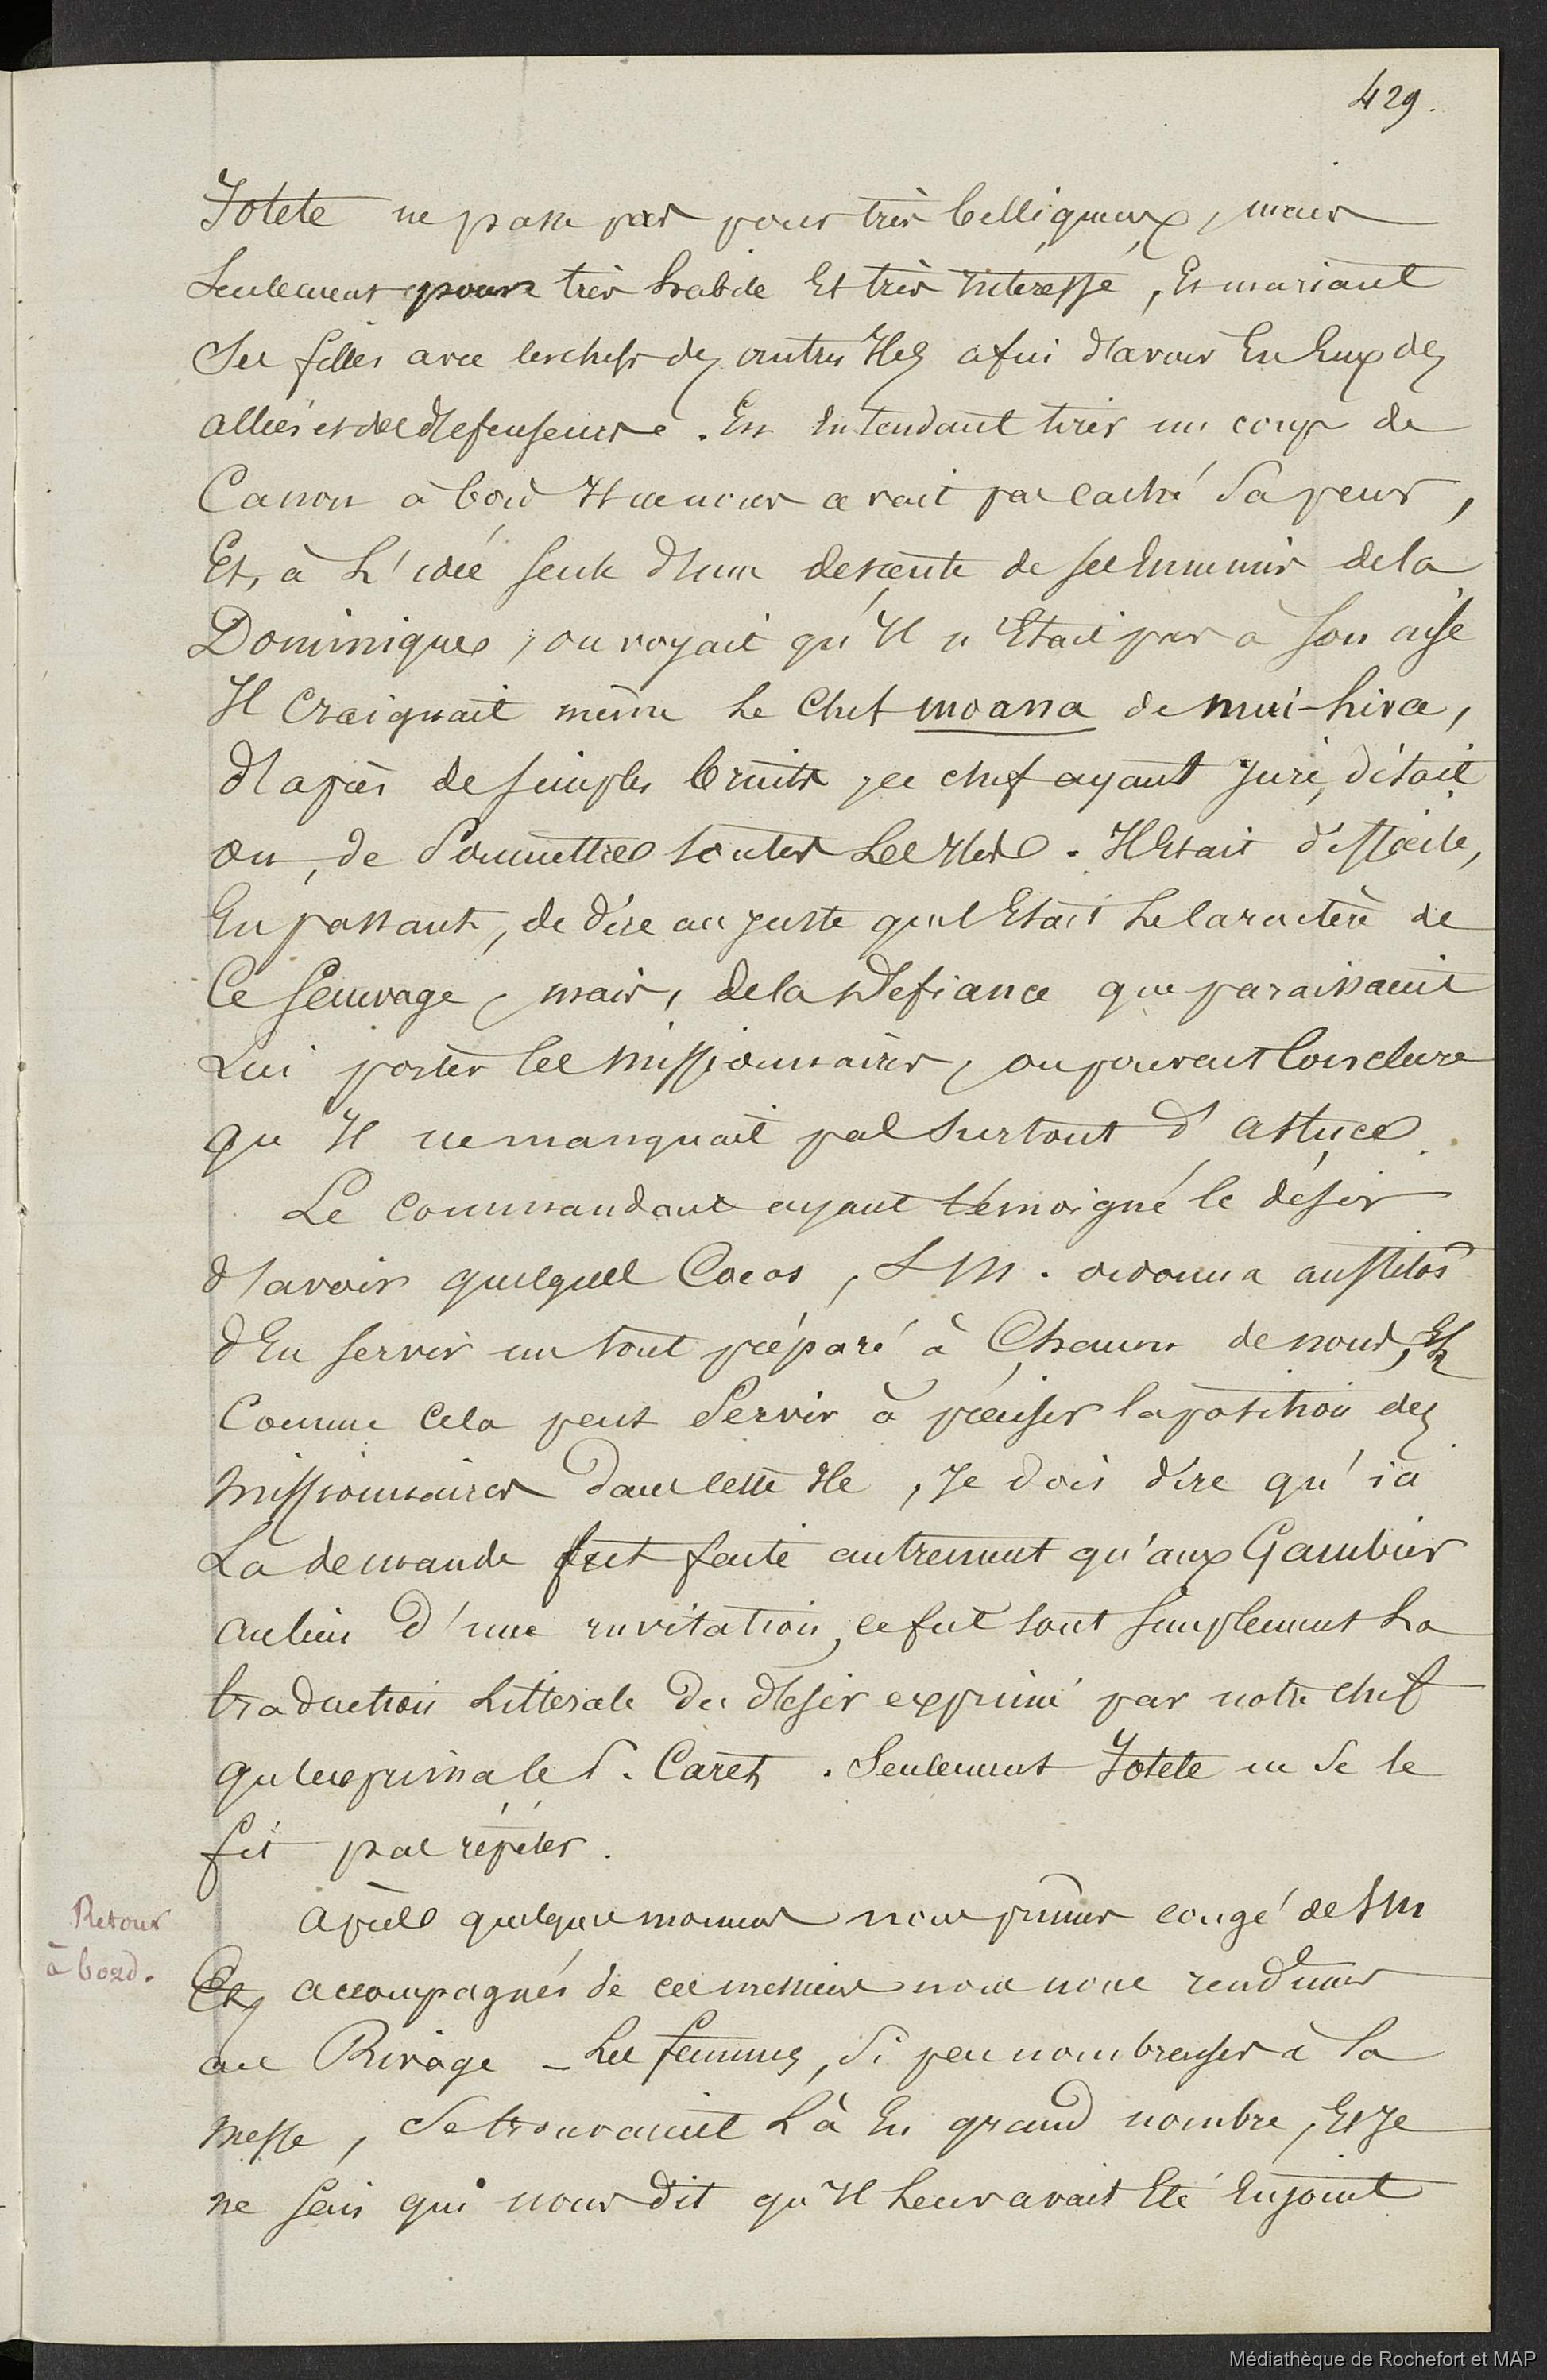 429.
Iotete ne passe pas pour très belliqueux, mais
Seulement pour très habile Et très intéressé, Et mariant
Ses filles avec les chefs des autres Iles afin d'avoir En Eux des
alliés et des défenseurs. En Entendant tirer un coup de
Canon à bord Il ne nous avait pas caché Sa peur,
Et, à L'idée seule d'une descente de ses Ennemis de la
Dominique, on voyait qu'Il n'Etait pas à Son aise
Il Craignait même Le Chef moana de nui-hiva,
d'après de simples bruits, ce chef ayant juré, disait
on, de Soumettre toutes Les Iles. Il Etait difficile,
En passant, de dire au juste quel Etait Le Caractère de
Ce Sauvage, mais, de la Défiance que paraissaient
Lui porter les Missionnaires, on pouvait Conclure
qu'Il ne manquait pas Surtout d'astuce.
Le Commandant ayant témoigné le désir
d'avoir quelques Cocos, S M. ordonna aussitôt
d'En servir un tout préparé à Chacun de nous, Et
Comme Cela peut Servir à préciser la position des
Missionnaires dans cette Ile, Je dois dire qu'ici
La demande fut faite autrement qu'aux Gambier
au lieu d'une invitation, ce fut tout simplement La
traduction Littérale du désir exprimé par notre chef
qu'exprima le P. Caret. Seulement Iotete ne Se le
fit pas répéter.
Retour
à bord.
Après quelques momens nous primes congé de S M
Et accompagnés de ces messieurs nous nous rendimes
au Rivage - Les femmes, Si peu nombreuses à La
Messe, Se trouvaient Là En grand nombre, Et Je
ne sais qui nous dit qu'Il Leur avait Eté Enjoint
Médiathèque de Rochefort et MAP